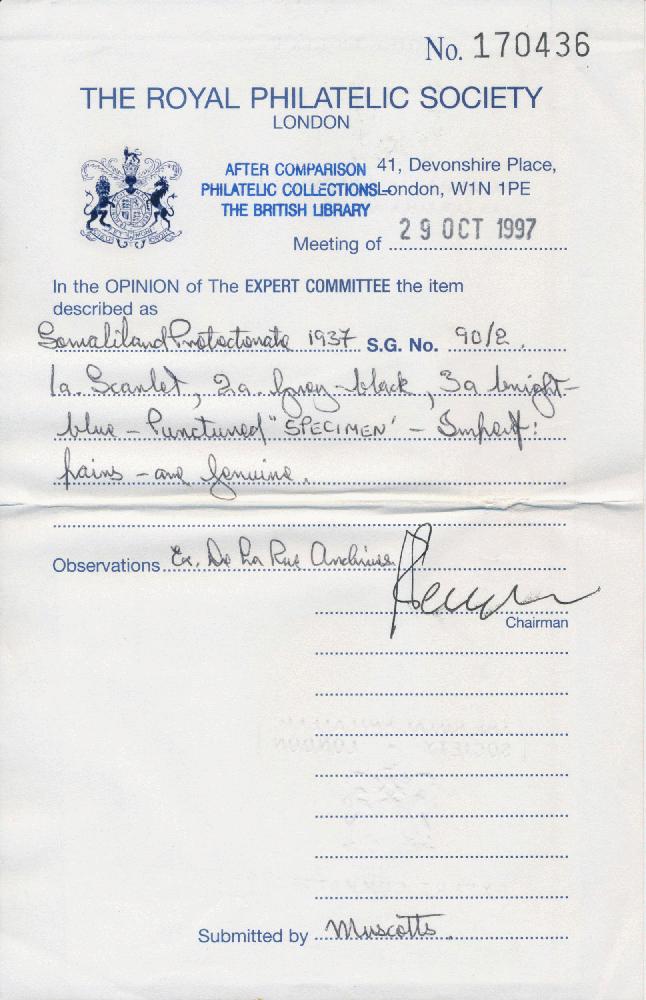 No. 170436
THE ROYAL PHILATELIC SOCIETY
LONDON
AFTER COMPARISON 41, Devonshire Place,
PHILATELIC COLLECTIONS London, W1N 1PE
THE BRITISH LIBRARY
Meeting of 29 OCT 1997
In the OPINION of The EXPERT COMMITTEE the item
described as
Somaliland Protectorate 1937 S.G. No. 90/2.
1a. Scarlet, 2a. Grey-black, 3a bright-
blue - Punctured "SPECIMEN" - Imperf:
pairs - are genuine.
Observations Ex. De La Rue Archives
Chairman
Submitted by Muscotts.